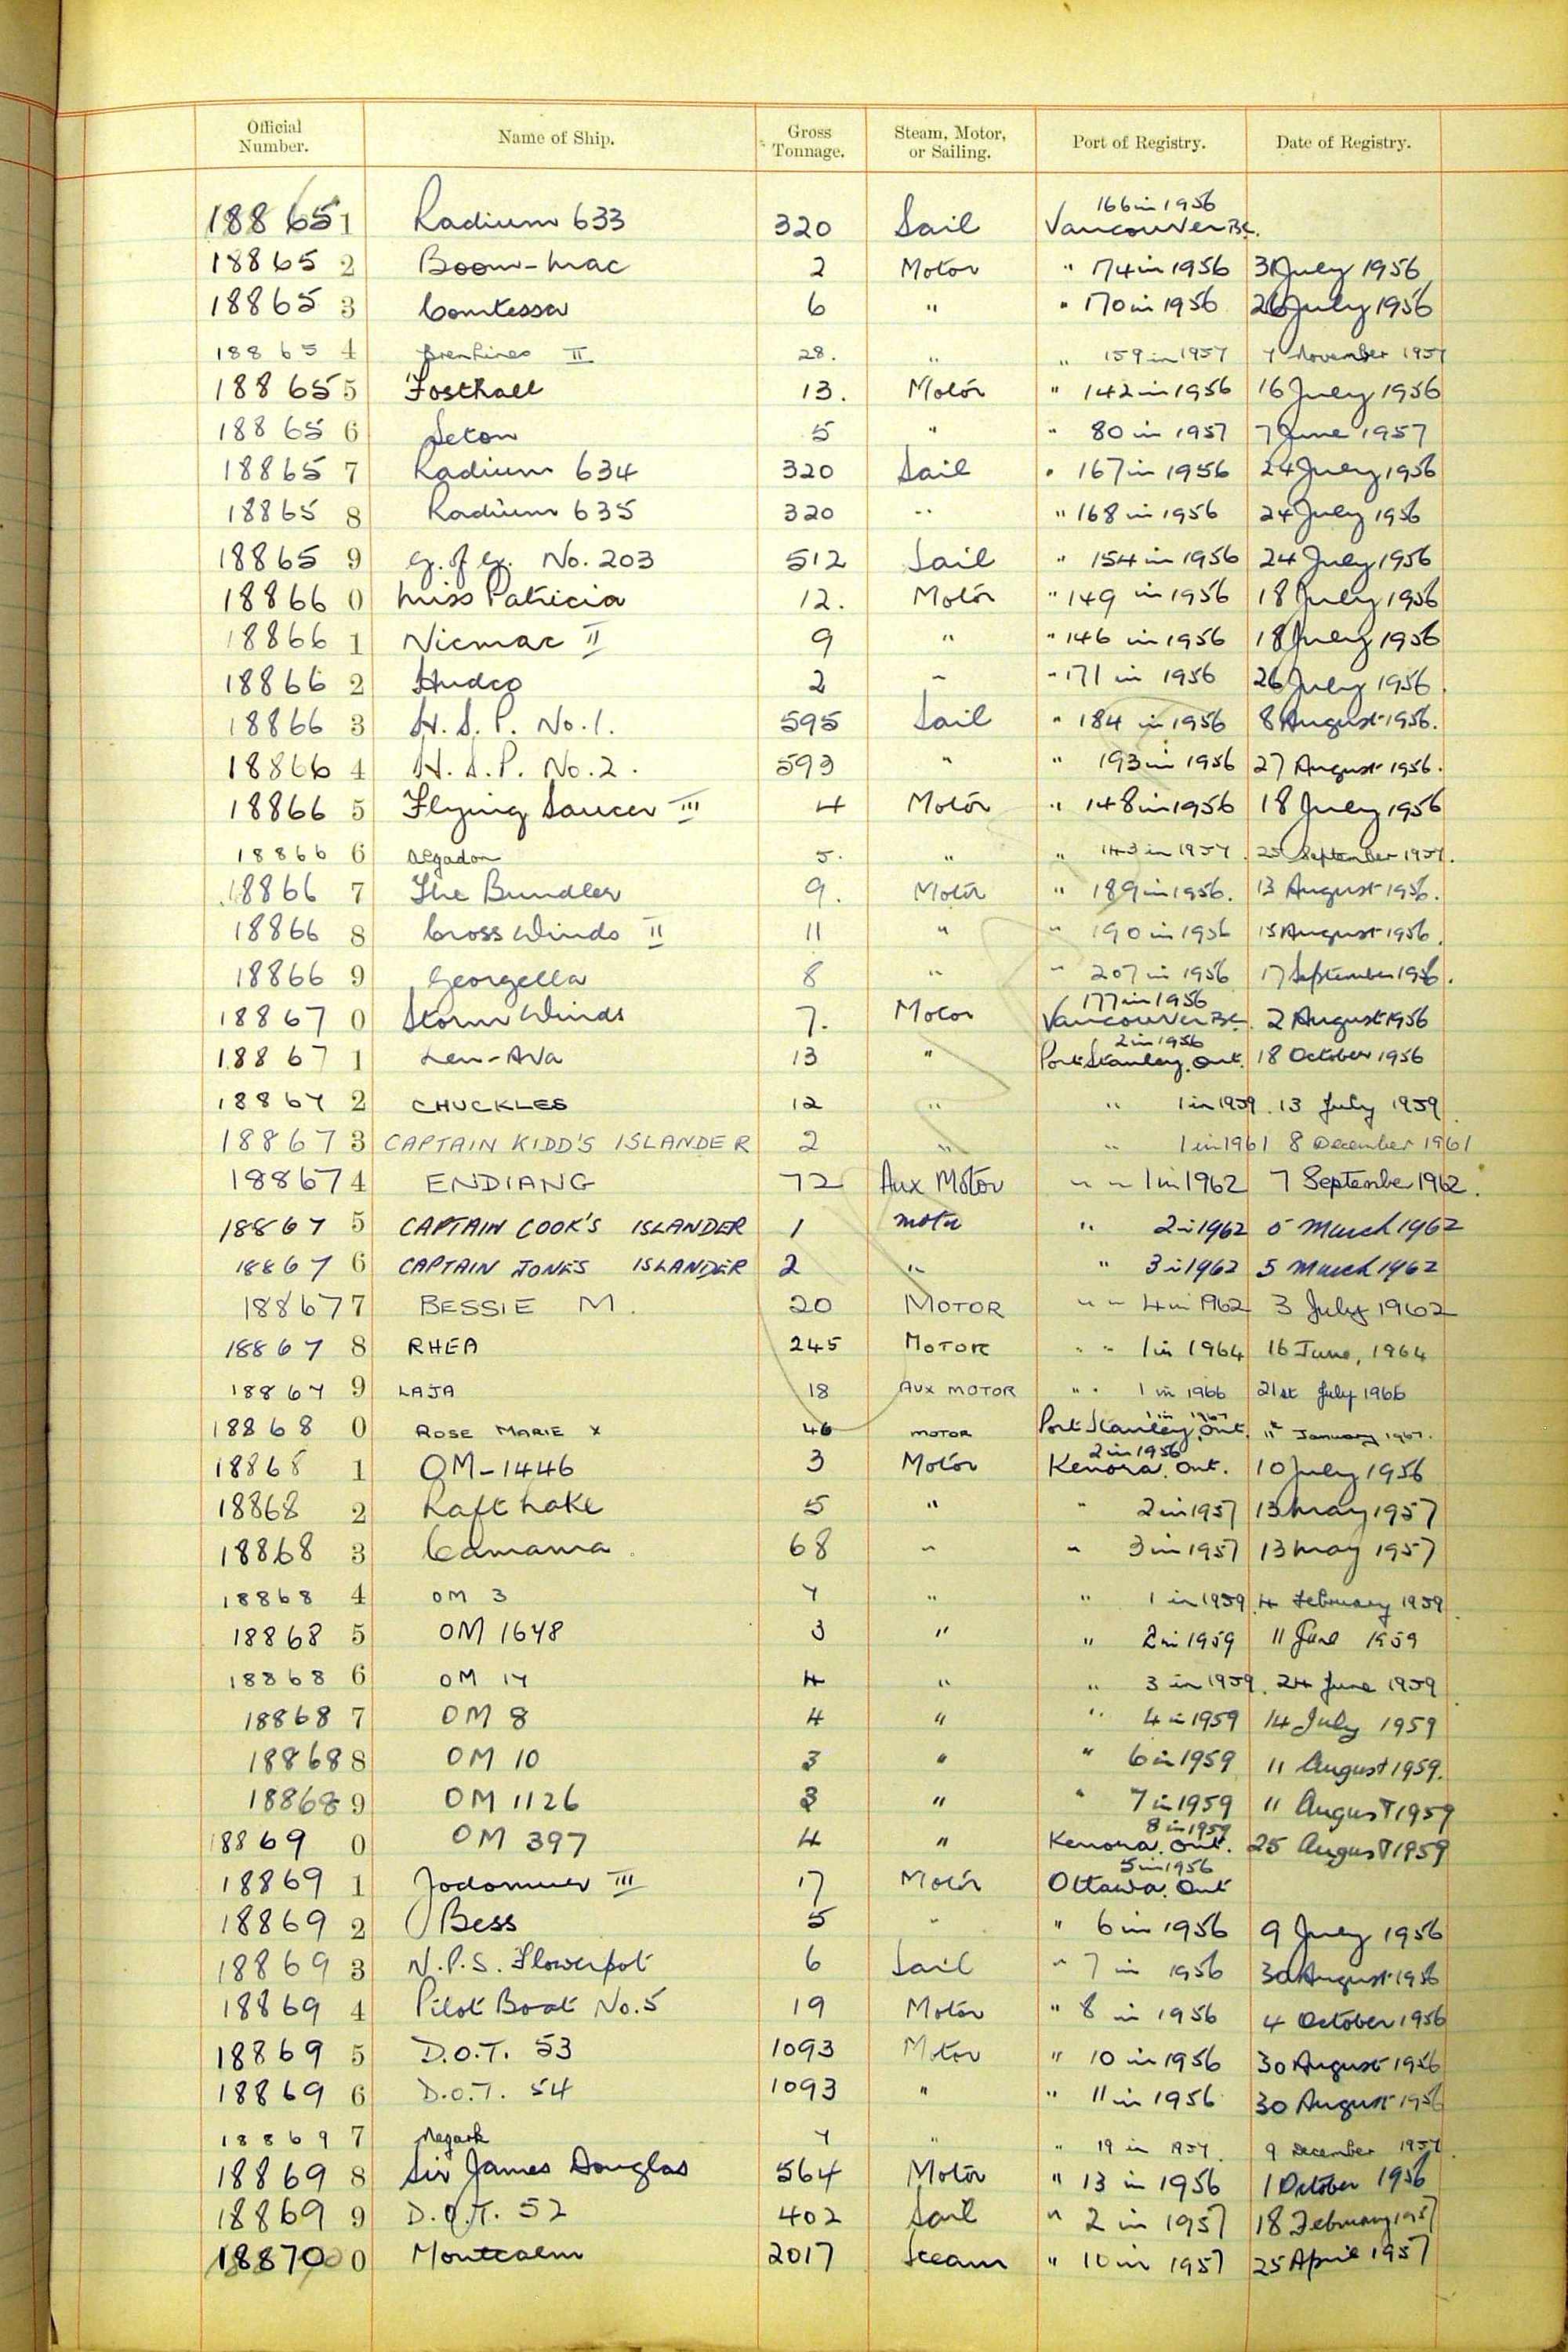 Official Number. Name of Ship. Gross Tonnage. Steam, Motor, or Sailing. Port of Registry. Date of Registry.
188651 Radium 633 320 Sail 166 in 1956 Vancouver B.C.
188652 Boom-Mac 2 Motor " 174 in 1956 31 July 1956
188653 Comtessa 6 " " 170 in 1956 26 July 1956
188654 II 28. " " 159 in 1957 7 November 1957
188655 Fosthall 13. Motor " 142 in 1956 16 July 1956
188656 Seton 5 " " 80 in 1957 7 June 1957
188657 Radium 634 320 Sail " 167 in 1956 24 July 1956
188658 Radium 635 320 " " 168 in 1956 24 July 1956
188659 G. of G. No. 203 512 Sail " 154 in 1956 24 July 1956
188660 Miss Patricia 12. Motor " 149 in 1956 18 July 1956
188661 Nicmac II 9 " " 146 in 1956 18 July 1956
188662 Hudco 2 " " 171 in 1956 26 July 1956.
188663 H. S. P. No. 1. 595 Sail " 184 in 1956 8 August 1956.
188664 H. S. P. No. 2. 593 " " 193 in 1956 27 August 1956.
188665 Flying Saucer III 4 Motor " 148 in 1956 18 July 1956
188666 5. " " 143 in 1957. 25 September 1957.
188667 The Bundler 9. Motor " 189 in 1956. 13 August 1956.
188668 Cross Winds II 11 " " 190 in 1956 15 August 1956.
188669 Georgella 8 " " 207 in 1956 17 September 1956.
188670 Storm Winds 7. Motor 177 in 1956 Vancouver B.C. 2 August 1956
188671 Len-Ava 13 " 2 in 1956 Port Stanley. Ont. 18 October 1956
188672 CHUCKLES 12 " " 1 in 1959. 13 July 1959.
188673 CAPTAIN KIDD'S ISLANDER 2 " " 1 in 1961 8 December 1961
188674 ENDIANG 72 Aux Motor " " 1 in 1962 7 September 1962.
188675 CAPTAIN COOK'S ISLANDER 1 motor " 2 in 1962 5 March 1962
188676 CAPTAIN JONES ISLANDER 2 " " 3 in 1962 5 March 1962
188677 BESSIE M. 20 MOTOR " " 4 in 1962 3 July 1962
188678 RHEA 245 MOTOR " " 1 in 1964 16 June, 1964
188679 LAJA 18 AUX MOTOR " " 1 in 1966 21st July 1966
188680 ROSE MARIE X 46 MOTOR 1 in 1967 Port Stanley, Ont. 11th January 1967.
188681 OM-1446 3 Motor 2 in 1956 Kenora. Ont. 10 July 1956
188682 Raft Lake 5 " " 2 in 1957 13 May 1957
188683 Camama. 68 " " 3 in 1957 13 May 1957
188684 OM 3 7 " " 1 in 1959. 4 February 1959.
188685 OM 1648 3 " " 2 in 1959 11 June 1959
188686 OM 17 4 " " 3 in 1959. 24 June 1959.
188687 OM 8 4 " " 4 in 1959 14 July 1959
188688 OM 10 3 " " 6 in 1959 11 August 1959.
188689 OM 1126 3 " " 7 in 1959 11 August 1959
188690 OM 397 4 " 8 in 1959 Kenora. Ont. 25 August 1959
188691 III 17 Motor 5 in 1956 Ottawa. Ont
188692 Bess 5 " " 6 in 1956 9 July 1956
188693 N.P.S. Flowerpot 6 Sail " 7 in 1956 30 August 1956
188694 Pilot Boat No. 5 19 Motor " 8 in 1956 4 October 1956
188695 D.O.T. 53 1093 Motor " 10 in 1956 30 August 1956
188696 D.O.T. 54 1093 " " 11 in 1956 30 August 1956
188697 7 " " 19 in 1957. 9 December 1957.
188698 Sir James Douglas 564 Motor " 13 in 1956 1 October 1956
188699 D.O.T. 52 402 Sail " 2 in 1957 18 February 1957
188700 Montcalm 2017 Steam " 10 in 1957 25 April 1957